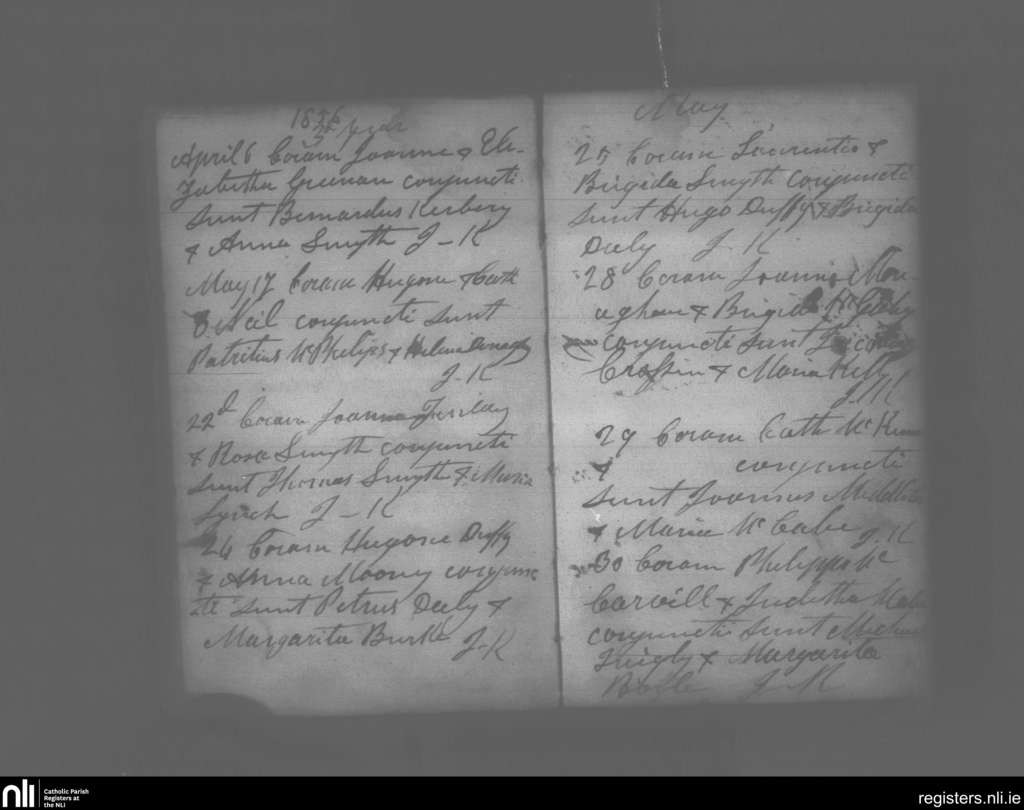 1836
April 6 Coram Joanne & Eli-
zabetha Greenan conjuncti
sunt Bernardus Kerbery
& Anna Smyth J-K
May 17 Coram Hugone & Cath
O Neil conjuncti sunt
Patritius McPhelips & Helena
J.K
22d Coram Joanne
& Rosa Smyth conjuncti
sunt Thomas Smyth & Maria
Lynch J-K
24 Coram Hugone Duffy
& Anna Moony conjunc
ti sunt Petrus Daly &
Margarita Burke J-K
May
25 Coram Laurentio &
Brigida Smyth conjuncti
sunt Hugo Duffy & Brigida
Daly J.K
28 Coram Joanne Mon-
aghan & Brigida
conjuncti sunt
& Maria Kelly
J.K
29 Coram Cath Mc
& conjuncti
sunt Joannes
& Maria McCabe J.K
30 Coram Philippo Mc
Carvill & Juditha
conjuncti sunt
& Margarita
Boyle J-K
nli
Catholic Parish
Registers at
the NLI
registers.nli.ie